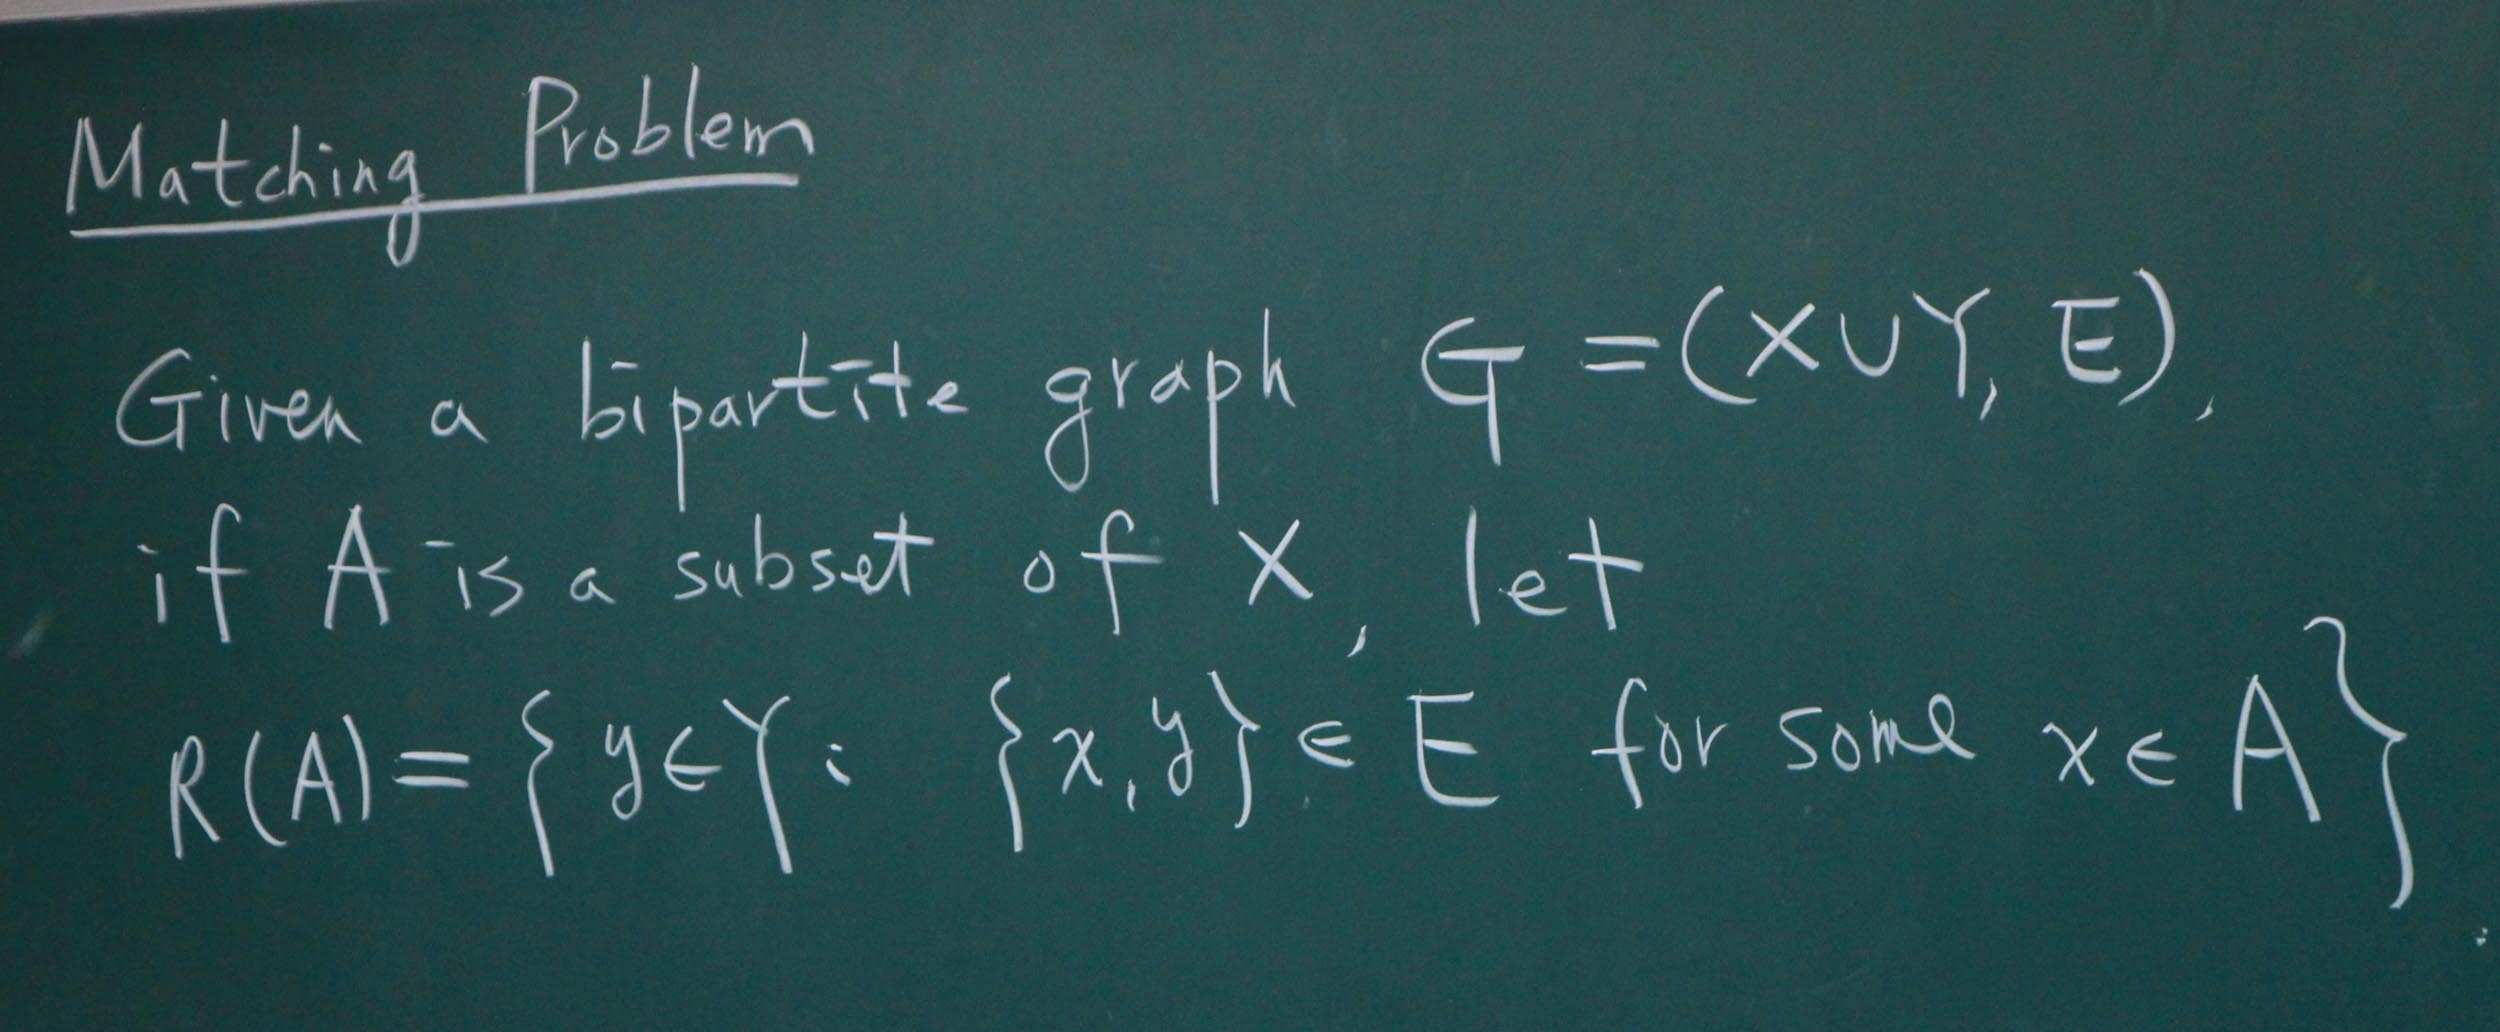 Matching Problem
Given a bipartite graph G = (X∪Y, E),
if A is a subset of X, let
R(A) = { y∈Y : {x,y}∈E for some x∈A}